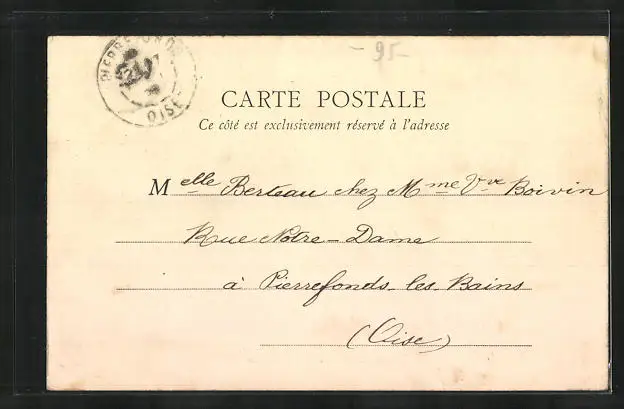 PIERREFONDS
OISE
- 95 -
CARTE POSTALE
Ce côté est exclusivement réservé à l'adresse
Melle Berteau chez Mme Vve Boivin
Rue Notre-Dame
à Pierrefonds-les-Bains
(Oise)